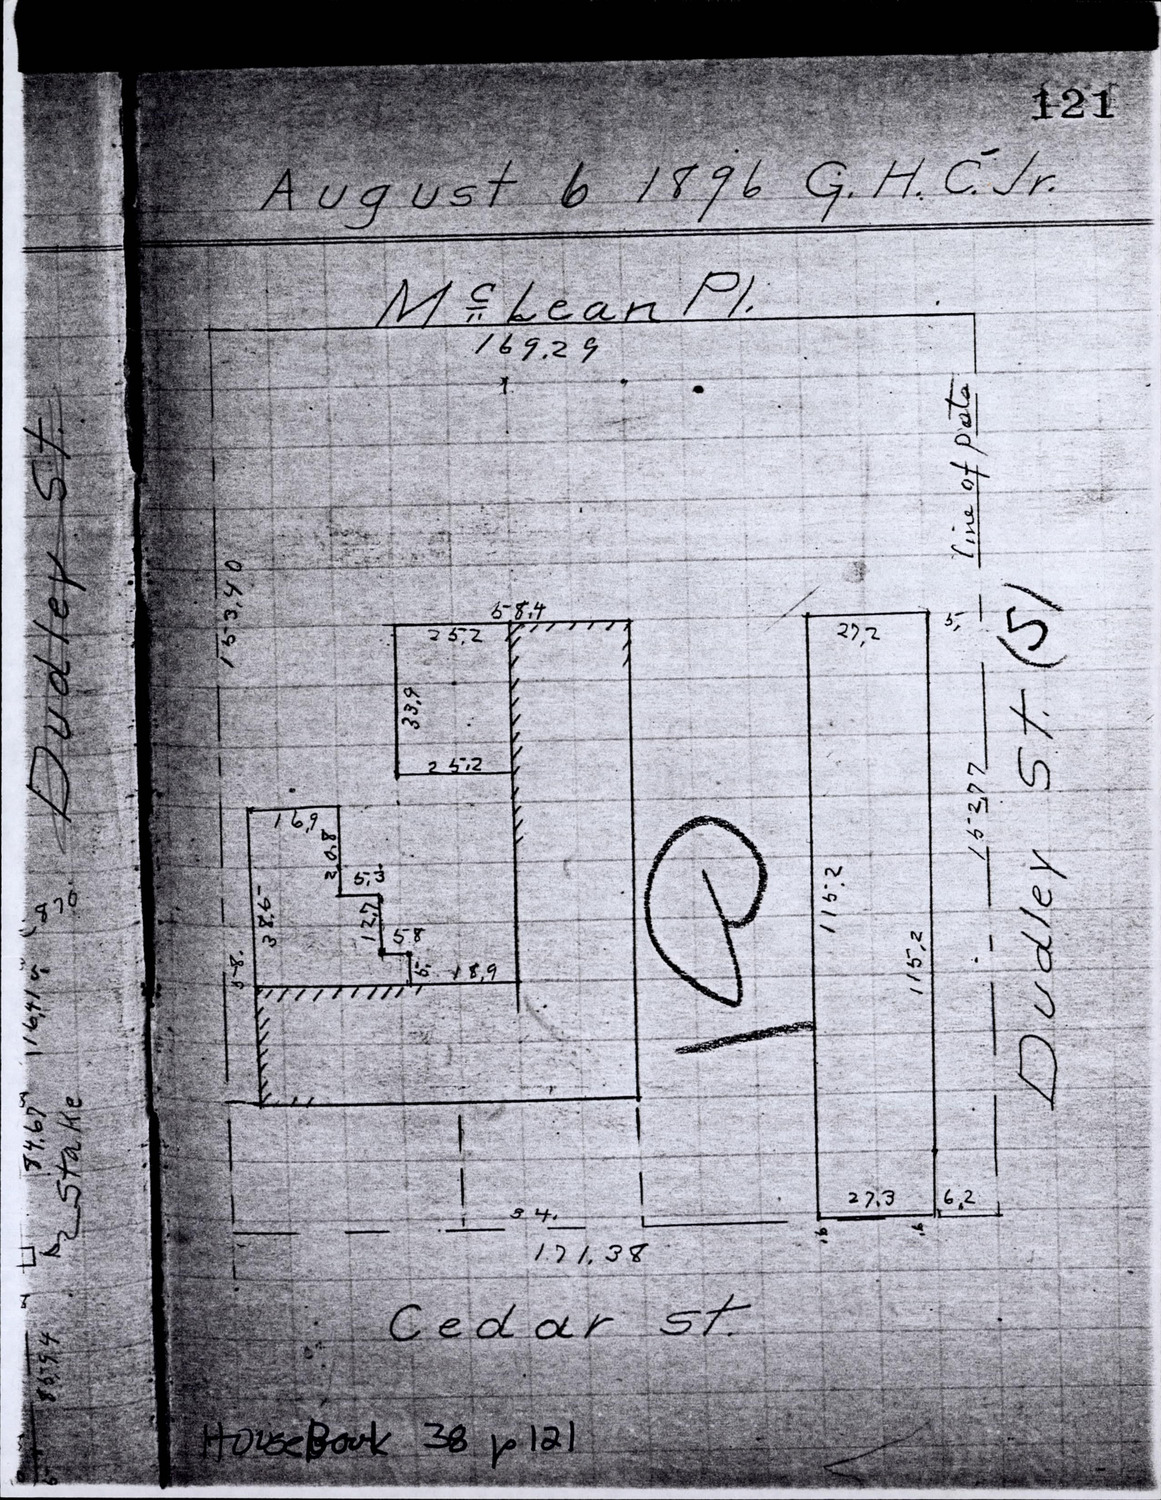 121
August 6 1896 G.H.C. Jr.
McLean Pl.
169.29
line of pots
153.40
58.4
25.2
27.2
5.
33.9
25.2
Dudley St. (5)
152.77
16.9
20.8
5.3
12.7
5.8
5.
18.9
38.5
58.
115.2
115.2
27.3
6.2
.6
.6
94.
171.38
Cedar St.
House Book 38 p 121
Dudley St.
Stake
84.67